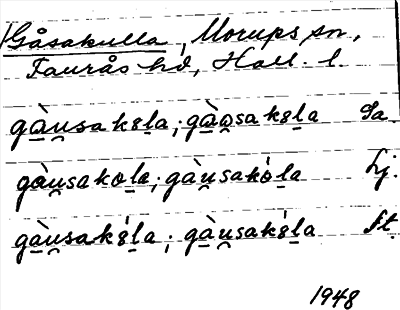 Gåsakulla, Morups sn,
Faurås hd, Hall. l.
gàu̯sakɞla; gàu̯sakɞla Sa.
gàu̯sakola; gàu̯sakòla Lj.
gàu̯sakɞ̀la; gàu̯sakɞ̀la St.
1948